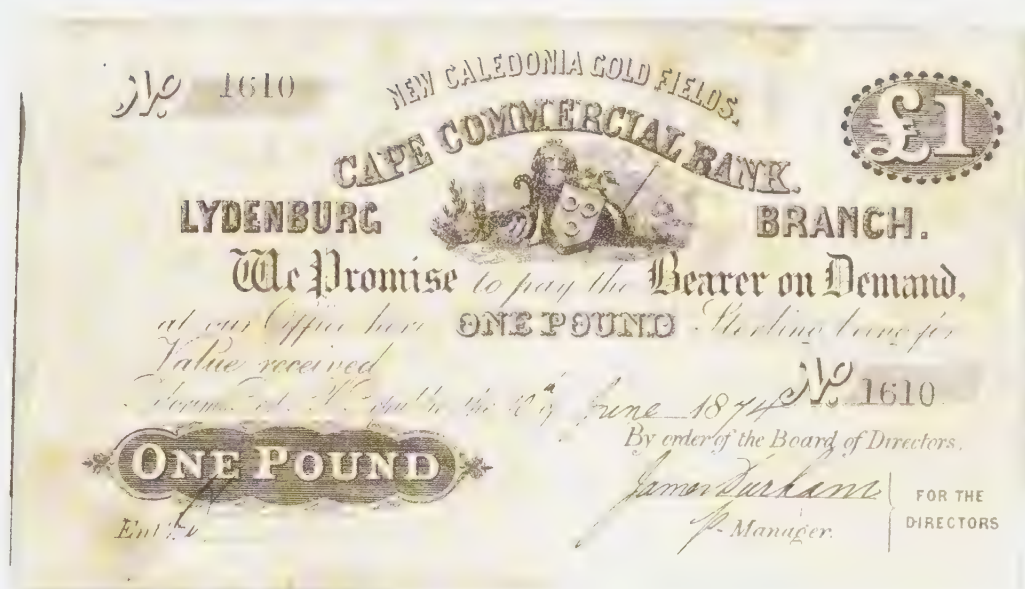 No 1610
NEW CALEDONIA GOLD FIELDS.
£1
CAPE COMMERCIAL BANK.
LYDENBURG BRANCH.
We Promise to pay the Bearer on Demand,
at our Office here ONE POUND Sterling being for
Value received
the June 1874 No 1610
By order of the Board of Directors.
ONE POUND
James Durham
FOR THE
DIRECTORS
P. Manager.